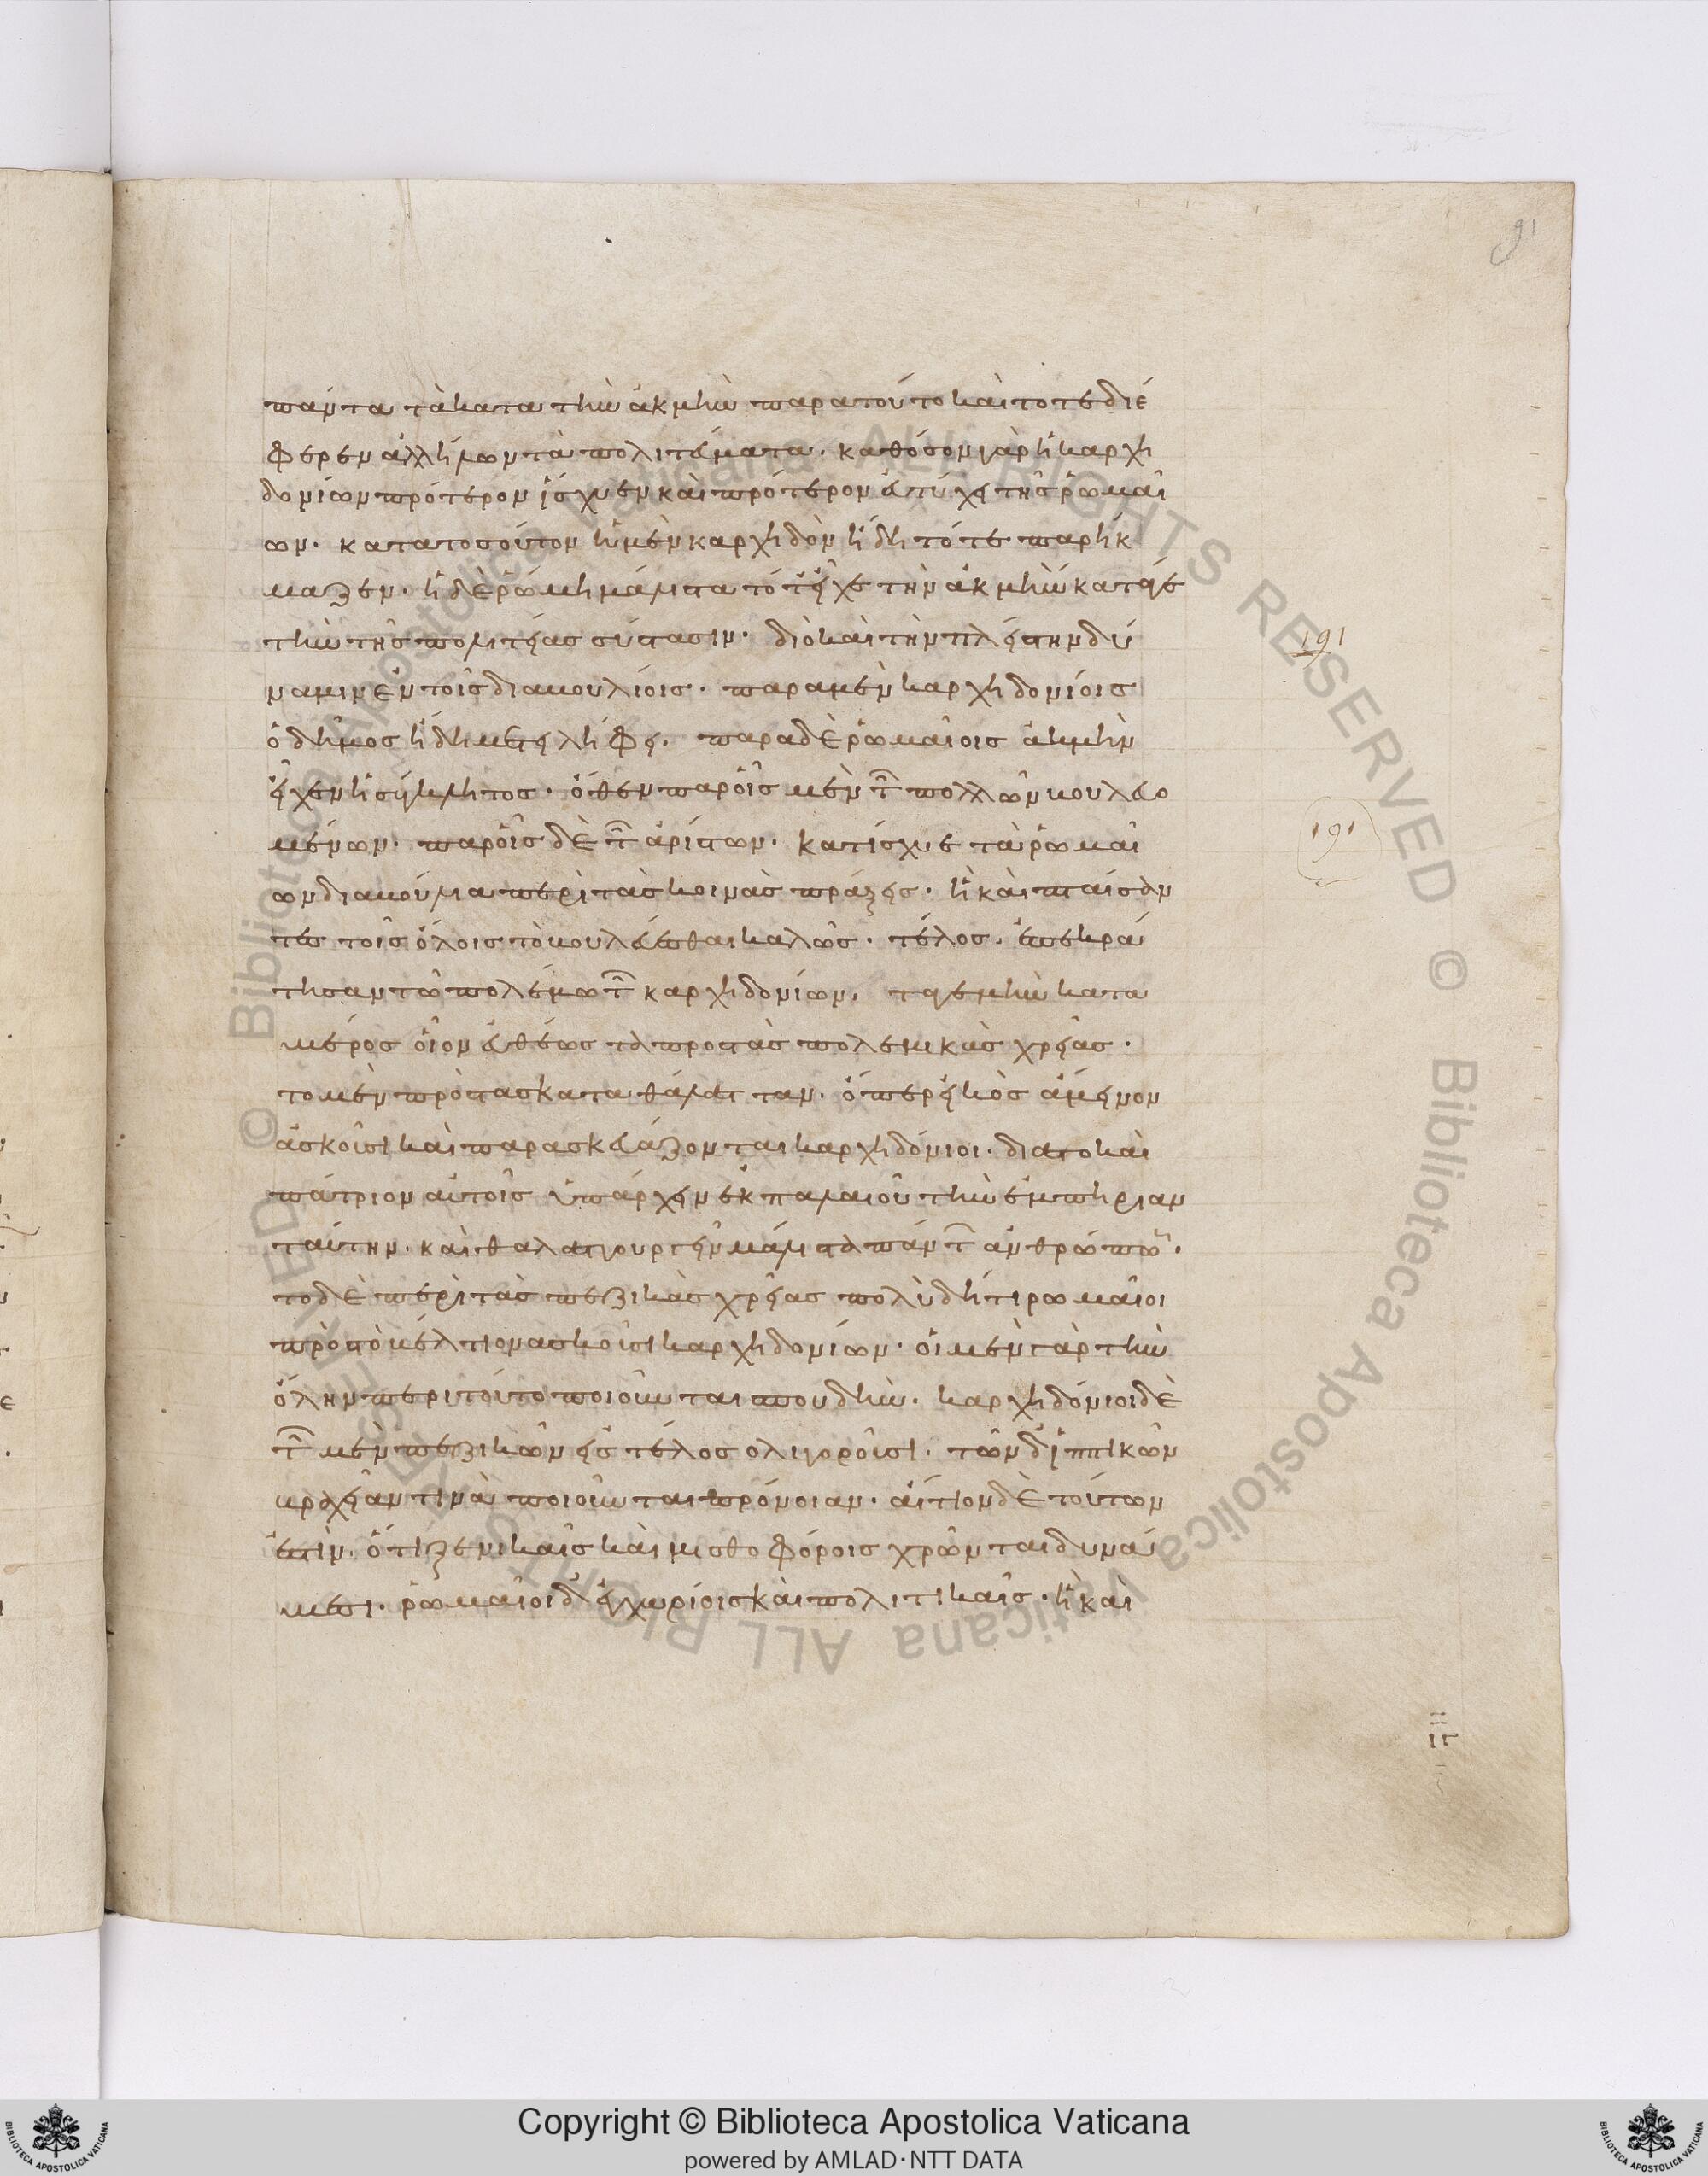 91
πάντα τὰ κατα τὴν ἀκμὴν παρατοῦτο καὶ τοτε διέ
φερεν ἀλλήλων τὰ πολιτεύματα. καθόσον γὰρ ἡ καρχη
δονίων πρότερον ἴσχυεν καὶ πρότερον εὐτύχει τῆς ῥωμαί
ων. κατατοσοῦτον ἡ μὲν καρχηδὼν ἤδη τότε παρήκ
μαζεν. ἡ δὲ ῥώμη μάλιστα τότ' εἶχε τὴν ἀκμὴν κατά γε
τὴν τῆς πολιτείας σύστασιν. διὸ καὶ τὴν πλείστην δύ
191
ναμιν ἐν τοῖς διαβουλίοις. παρα μὲν καρχηδονίοις
ὁ δῆμος ἤδη μετειλήφει. παρα δὲ ῥωμαίοις ἀκμὴν
εἶχεν ἡ σύγκλητος. ὅθεν παροἷς μὲν τῶν πολλῶν βουλευο
μένων. παροἷς δὲ τῶν ἀρίστων. κατίσχυε τὰ ῥωμαί
191
ων διαβούλια περὶ τὰς κοινὰς πράξεις. ἧ καὶ πταίσαν
τες τοῖς ὅλοις τὸ βουλεύεσθαι καλῶς. τέλος. ἐπεκρά
τησαν τῶ πολέμω τῶν καρχηδονίων. τά γε μὴν κατα
μέρος οἷον εὐθέως τὰ προστὰς πολεμικὰς χρείας.
το μὲν πρὸς τὰς κατα θάλατταν. ὅπερ εἰκὸς ἄμεινον
ἀσκοῦσι καὶ παρασκευάζονται καρχηδόνιοι. διατο καὶ
πάτριον αὐτοῖς ὑπάρχειν ἐκ παλαιοῦ τὴν ἐμπηριαν
ταύτην. καὶ θαλαττουργεῖν μάλιστα πάντων ἀνθρώπων.
το δὲ περὶ τὰς πεζικὰς χρείας πολὺ δή τι ρωμαῖοι
πρὸς τὸ βέλτιον ασκοῦσι καρχηδονίων. οἱ μὲν γὰρ τὴν
ὅλην περι τοῦτο ποιοῦνται σπουδήν. καρχηδόνιοι δὲ
τῶν μὲν πεζικῶν εἰς τέλος ολιγοροῦσι. τῶν δ' ἱππικῶν
βραχεῖαν τινὰ ποιοῦνται πρόνοιαν. αἴτιον δὲ τούτων
ἐστὶν. ὅτι ξενικαῖς καὶ μισθοφόροις χρῶνται δυνά
μεσι. ῥωμαῖοι δ' ἐγχωρίοις καὶ πολιτικαῖς. ἧ καὶ
© Biblioteca Apostolica Vaticana ALL RIGHTS RESERVED © Biblioteca Apostolica Vaticana ALL RIGHTS RESERVED
Copyright © Biblioteca Apostolica Vaticana
powered by AMLAD·NTT DATA
BIBLIOTECA APOSTOLICA VATICANA
BIBLIOTECA APOSTOLICA VATICANA